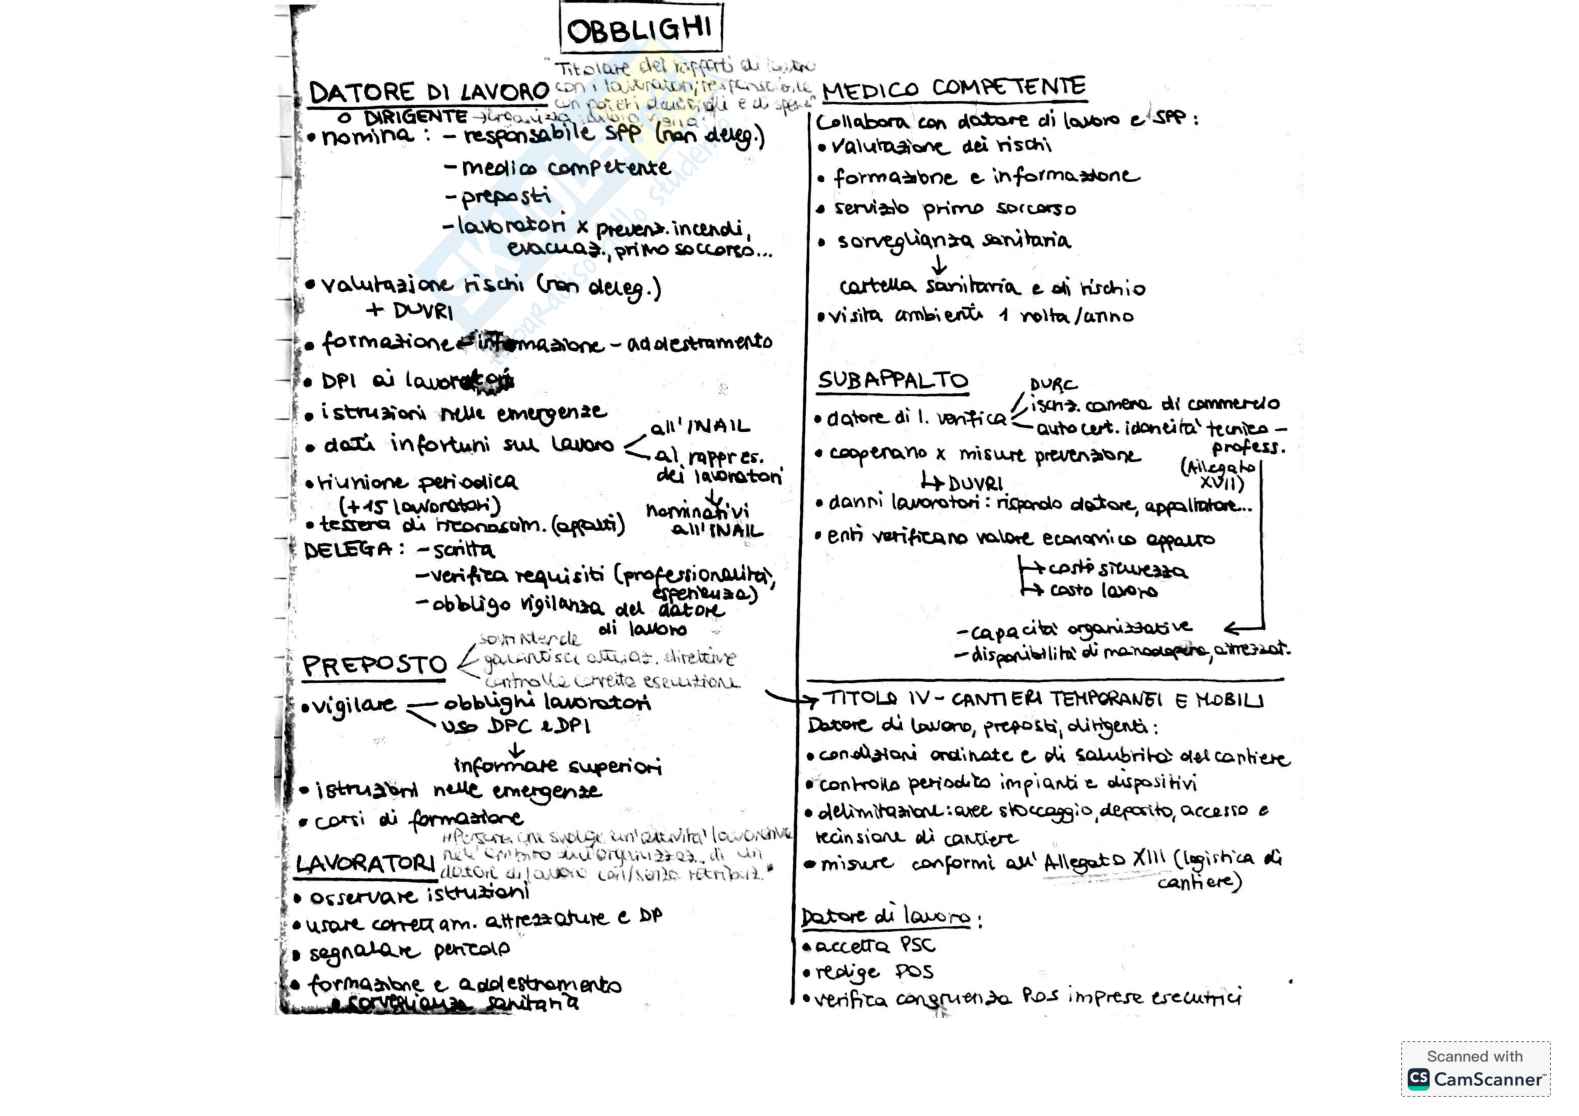 OBBLIGHI
DATORE DI LAVORO
"Titolare del rapporti di lavoro
con i lavoratori, responsabile
con poteri decis[.]li e di spesa"
O DIRIGENTE → organizza
• nomina : - responsabile SPP (non deleg.)
- medico competente
- preposti
- lavoratori x prevenz. incendi,
evacuaz., primo soccorso...
• valutazione rischi (non deleg.)
+ DUVRI
• formazione - informazione - addestramento
• DPI ai lavoratori
• istruzioni nelle emergenze
• dati infortuni sul lavoro
all'INAIL
al rappres.
dei lavoratori
↓
nominativi
all'INAIL
• riunione periodica
(+15 lavoratori)
• tessera di riconoscim. (appalti)
DELEGA : - scritta
- verifica requisiti (professionalità,
esperienza)
- obbligo vigilanza del datore
di lavoro
PREPOSTO
sovrintende
garantisci attuaz. direttive
controlla corretta esecuzione
• vigilare
obblighi lavoratori
uso DPC e DPI
↓
informare superiori
• istruzioni nelle emergenze
• corsi di formazione
LAVORATORI
"Persona che svolge un'attività lavorativa
nell'ambito dell'organizzaz. di un
datori di lavoro con/senza retribuz."
• osservare istruzioni
• usare correttam. attrezzature e DP
• segnalare pericolo
• formazione e addestramento
• sorveglianza sanitaria
MEDICO COMPETENTE
Collabora con datore di lavoro e SPP :
• valutazione dei rischi
• formazione e informazione
• servizio primo soccorso
• sorveglianza sanitaria
↓
cartella sanitaria e di rischio
• visita ambienti 1 volta/anno
SUBAPPALTO
• datore di l. verifica
DURC
iscriz. camera di commercio
autocert. idoneità tecnico -
profess.
(Allegato
XVII)
• cooperano x misure prevenzione
↳ DUVRI
• danni lavoratori : rispondo datore, appaltatore...
• enti verificano valore economico appalto
→ costo sicurezza
→ costo lavoro
- capacità organizzative
- disponibilità di manodopera, attrezzat.
→ TITOLO IV - CANTIERI TEMPORANEI E MOBILI
Datore di lavoro, preposti, dirigenti :
• condizioni ordinate e di salubrità del cantiere
• controllo periodico impianti e dispositivi
• delimitazione : aree stoccaggio, deposito, accesso e
recinsione di cantiere
• misure conformi all'Allegato XIII (logistica di
cantiere)
Datore di lavoro :
• accetta PSC
• redige POS
• verifica congruenza POS imprese esecutrici
Scanned with
CS CamScanner